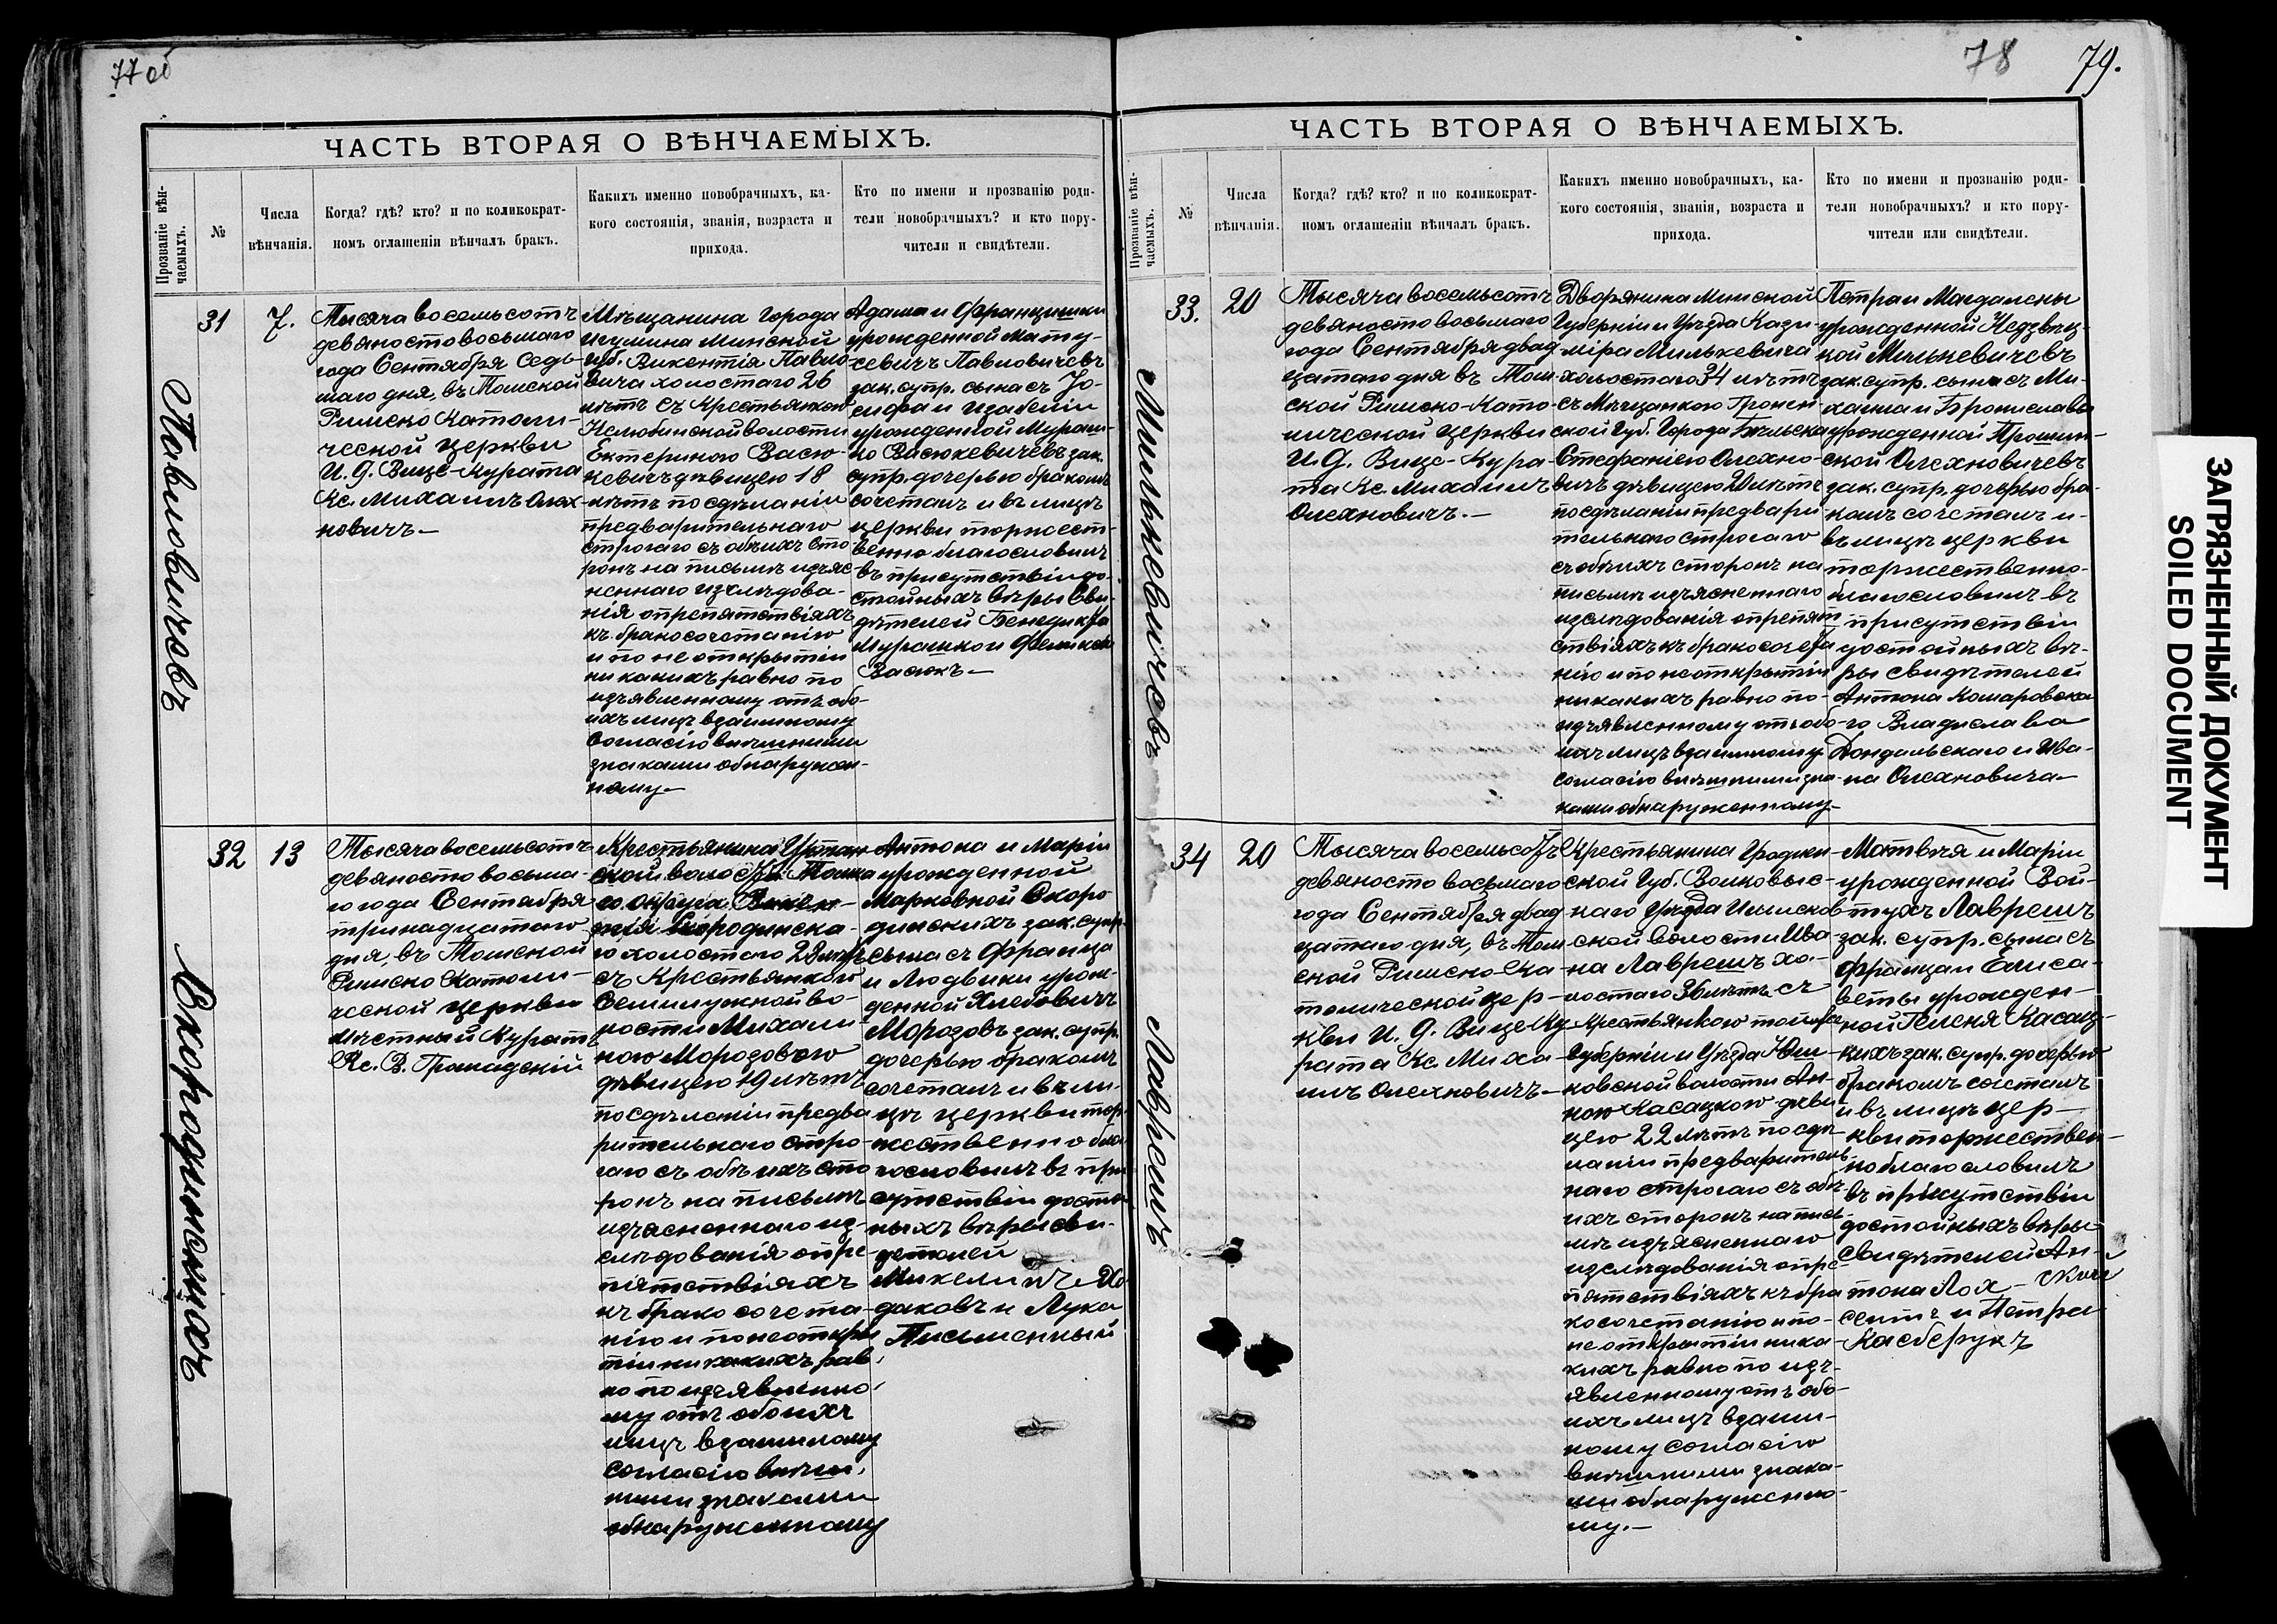 77 об
ЧАСТЬ ВТОРАЯ О ВѢНЧАЕМЫХЪ.
Прозваніе вѣн-
чаемыхъ.
№
Числа
вѣнчанія.
Когда? гдѣ? кто? и по коликократ-
номъ оглашеніи вѣнчалъ бракъ.
Какихъ именно новобрачныхъ, ка-
кого состоянія, званія, возраста и
прихода.
Кто по имени и прозванію роди-
тели новобрачныхъ? и кто пору-
чители и свидѣтели.
Павловичевъ
31
7.
Тысяча восемьсотъ
девяностовосьмаго
года Сентября Седь-
маго дня, въ Томской
Римско Католи-
ческой церкви
И. д. Вице-Курата
Кс. Михаилъ Олех-
новичъ—
Мѣщанина города
Игумина Минской
губ. Викентія Павло-
вича холостаго 26
лѣтъ съ Крестьянкою
Нелюбинской волости
Екатериною Васю-
кевичъ дѣвицею 18
лѣтъ по сдѣланіи
предварительнаго
строгаго съ обѣихъ сто-
ронъ на письмѣ изъяс-
неннаго изслѣдова-
нія опрепятствіяхъ
къ бракосочетанію
и по не открытіи
никакихъ равно по
изъявленному отъ обо-
ихъ лицъ взаимному
согласію внѣшними
знаками обнаружен-
ному—
Адама и Францишки
урожденной Мату-
севичъ Павловичевъ
зак. супр. сына съ Іо-
сифа и Изабеліи
урожденной Мураш-
ко Васюкевичевъ зак.
супр. дочерью бракомъ
сочеталъ и въ лицѣ
церкви торжест-
венно благословилъ
въ присутствіи до-
стойныхъ вѣры Сви-
дѣтелей Бенедикта
Мурашко и Феликса
Васюкъ—
Скородинскихъ
32
13
Тысяча восемьсотъ
девяносто восьма-
го года Сентября
тринадцатаго
дня, въ Томской
Римско Католи-
ческой церкви
Мѣстный Куратъ
Кс. В. Громадскій
Крестьянина
ской волости Томска
го округа Викен-
тія Скородинска-
го холостаго 28 лѣтъ
съ Крестьянкой
Семилужной во-
лости Михали-
ною Морозовою
дѣвицею 19 лѣтъ
по сдѣланіи предва
рительнаго стро-
гаго съ обѣихъ сто
ронъ на письмѣ
изъясненнаго из-
слѣдованія опре-
пятствіяхъ
къ брако сочета-
нію и по неоткры
тіи никакихъ рав
но по изъявленно-
му отъ обоихъ
лицъ взаимному
согласію внѣш-
ними знаками
обнаруженному
Антона и Маріи
урожденной
Марковной Скоро
динскихъ зак. супр.
сына съ Франца
и Людвики урож-
денной Хлебовичъ
Морозовъ зак. супр.
дочерью бракомъ
сочеталъ и въ ли-
цѣ церкви тор-
жественно бла-
гословилъ въ при
сутствіи достой
ныхъ вѣры сви-
детелей
Лука
Письменный
78
79.
ЧАСТЬ ВТОРАЯ О ВѢНЧАЕМЫХЪ.
Прозваніе вѣн-
чаемыхъ.
№
Числа
вѣнчанія.
Когда? гдѣ? кто? и по коликократ-
номъ оглашеніи вѣнчалъ бракъ.
Какихъ именно новобрачныхъ, ка-
кого состоянія, званія, возраста и
прихода.
Кто по имени и прозванію роди-
тели новобрачныхъ? и кто пору-
чители или свидѣтели.
Милькевичевъ
33.
20
Тысяча восемьсотъ
девяносто восьмаго
года Сентября двад
цатаго дня въ Том-
ской Римско-Като-
лической церкви
И. д. Вице-Кура-
та Кс. Михаилъ
Олехновичъ.—
Дворянина Минской
Губерніи и Уѣзда Кази-
міра Милькевича
холостаго 34 лѣтъ
съ Мѣщанкою Гроднен-
ской Губ. Города Бѣльска
Стефаніею Олехно-
вичъ дѣвицею 20 лѣтъ
по сдѣланіи предвари-
тельнаго строгаго
съ обѣихъ сторонъ на
письмѣ изъясненнаго
изслѣдованія опрепят
ствіяхъ къ бракосочета
нію и по неоткрытіи
никакихъ равно по-
изъявленному отъ обо-
ихъ лицъ взаимному
согласію внѣшними зна-
ками обнаруженному—
Петра и Магдалены
урожденной Недзвец-
кой Милькевичевъ
зак. супр. сына съ Ми-
хаила и Брониславы
урожденной Прошин-
ской Олехновичевъ
зак. супр. дочерью бра-
комъ сочеталъ и-
въ лицѣ церкви
торжественно-
благословилъ въ
присутствіи
достойныхъ вѣ-
ры свидѣтелей
Антона Комаровска-
го Владислава
Дондальскаго и Ива-
на Олехновича—
Лаврешъ
34
20
Тысяча восемьсотъ
девяносто восьмаго
года Сентября двад
цатаго дня, въ Том-
ской Римско-Ка-
толической цер-
кви И. д. Вице Ку
рата Кс. Миха-
илъ Олехновичъ—
Крестьянина Гроднен-
ской Губ. Волковыс-
каго Уѣзда
ской волости Ива-
на Лаврешъ хо-
лостаго 36 лѣтъ съ
Крестьянкою той же
Губерніи и Уѣзда
ковской волости Ан-
ною Касацкою дѣви
цею 22 лѣтъ по сдѣ-
ланіи предваритель
наго строгаго съ обѣ-
ихъ сторонъ на пись-
мѣ изъясненнаго
изслѣдованія опре-
пятствіяхъ къ бра
косочетанію и по-
не открытіи ника-
кихъ равно по изъ-
явленному отъ обо-
ихъ лицъ взаим-
ному согласію
внѣшними знака-
ми обнаруженно-
му.—
Матвѣя и Маріи
урожденной Вой-
тухъ Лаврешъ
зак. супр. сына съ
Франца и Елиса-
веты урожден-
ной Касац-
кихъ зак. супр. дочерью
бракомъ сочеталъ
и въ лицѣ цер-
кви торжествен-
но благословилъ
въ присутствіи
достойныхъ вѣры
свидѣтелей Ан-
тона
и Петра
Касберукъ
ЗАГРЯЗНЕННЫЙ ДОКУМЕНТ
SOILED DOCUMENT